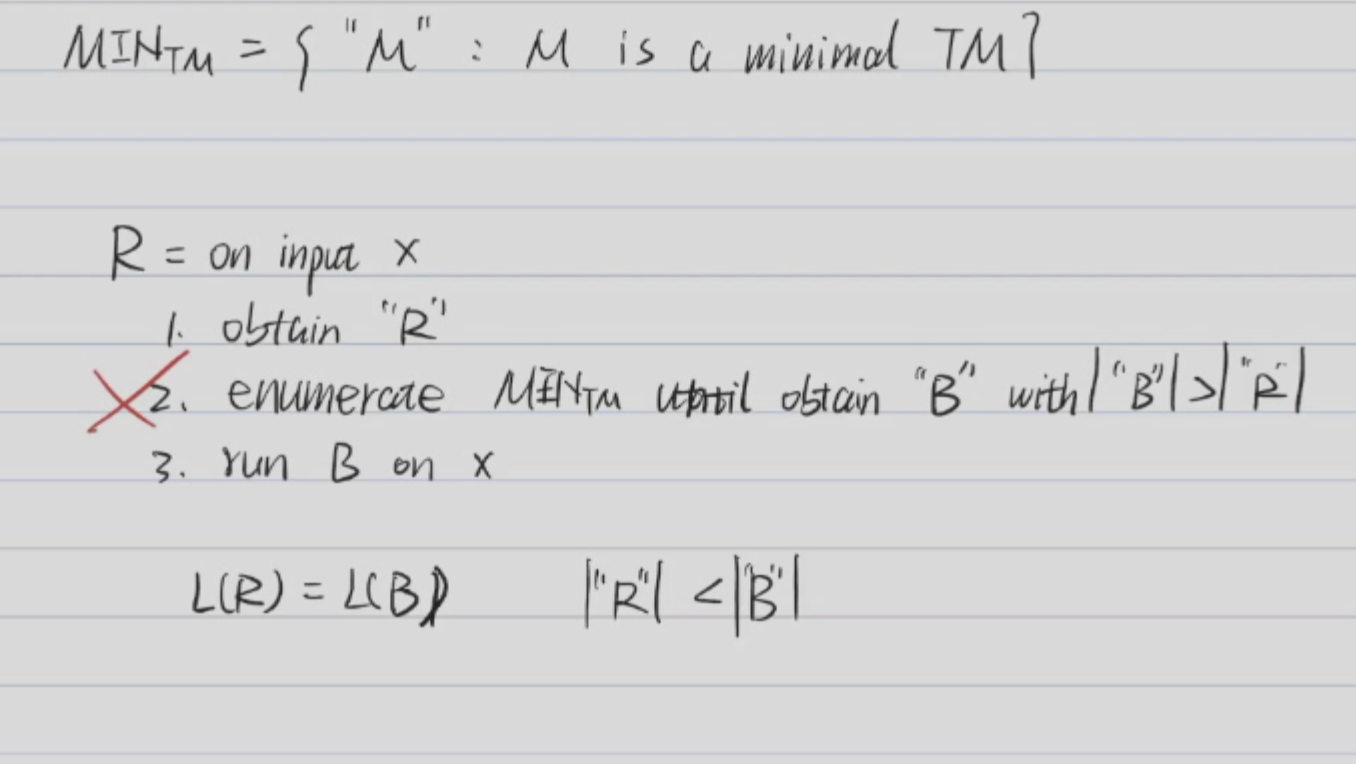 MIN_TM = { "M" : M is a minimal TM }
R = on input x
1. obtain "R"
2. enumerate MIN_TM until obtain "B" with |"B"| > |"R"|
3. run B on x
L(R) = L(B) |"R"| < |"B"|